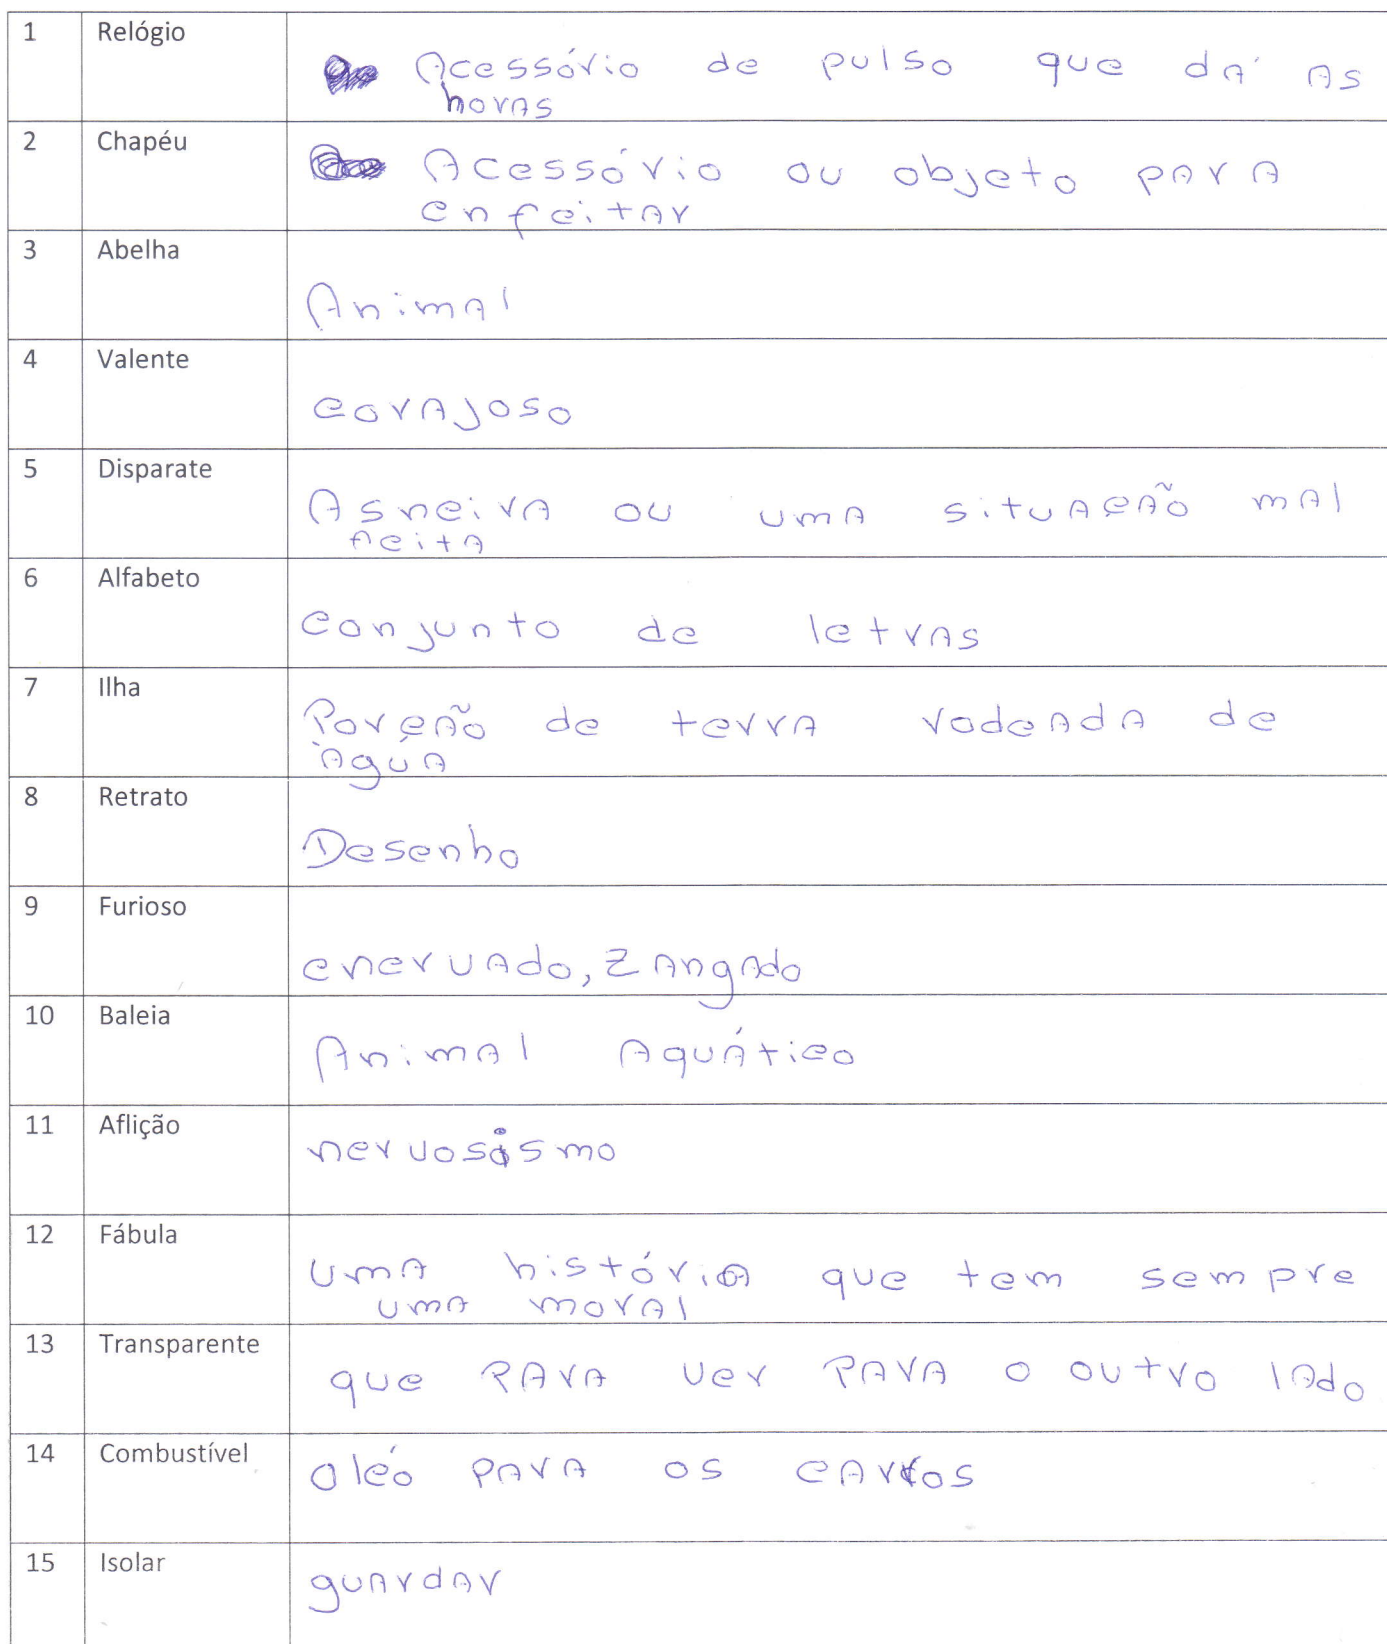 1 Relógio
Acessório de pulso que dá as
horas
2 Chapéu
Acessório ou objeto para
enfeitar
3 Abelha
Animal
4 Valente
corajoso
5 Disparate
Asneira ou uma situação mal
feita
6 Alfabeto
conjunto de letras
7 Ilha
Porção de terra rodeada de
àgúa
8 Retrato
Desenho
9 Furioso
enervado, zangado
10 Baleia
Animal Aquático
11 Aflição
nervosismo
12 Fábula
uma história que tem sempre
uma moral
13 Transparente
que para ver para o outro lado
14 Combustível
oléo para os carros
15 Isolar
guardar